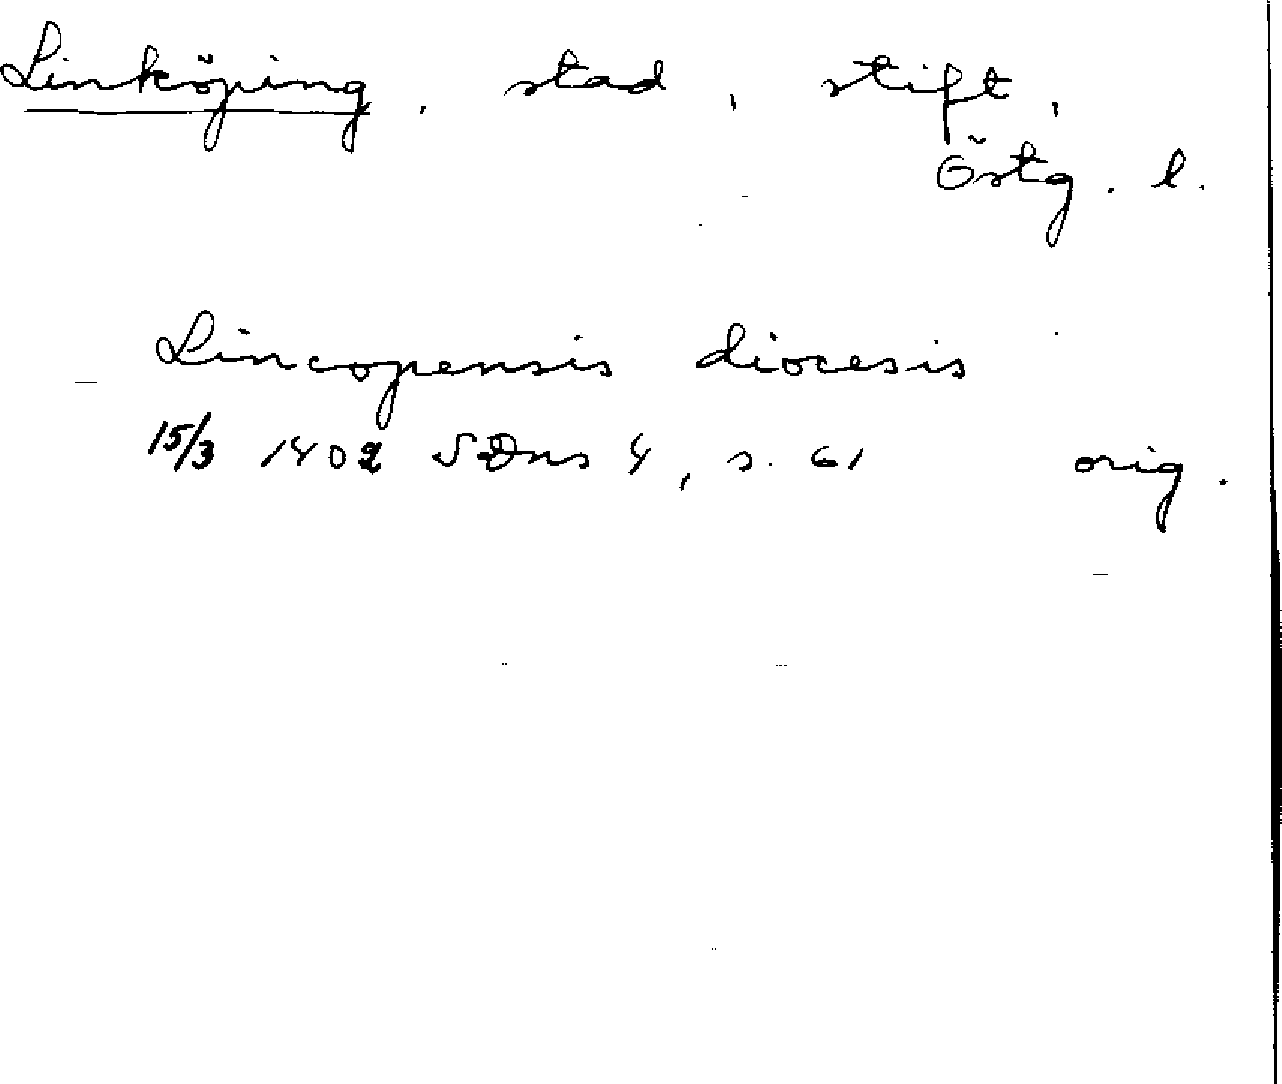 Linköping, stad, stift,
Östg. l.
Lincopensis diocesis
15/3 1402 SDns 4, s. 61 orig.